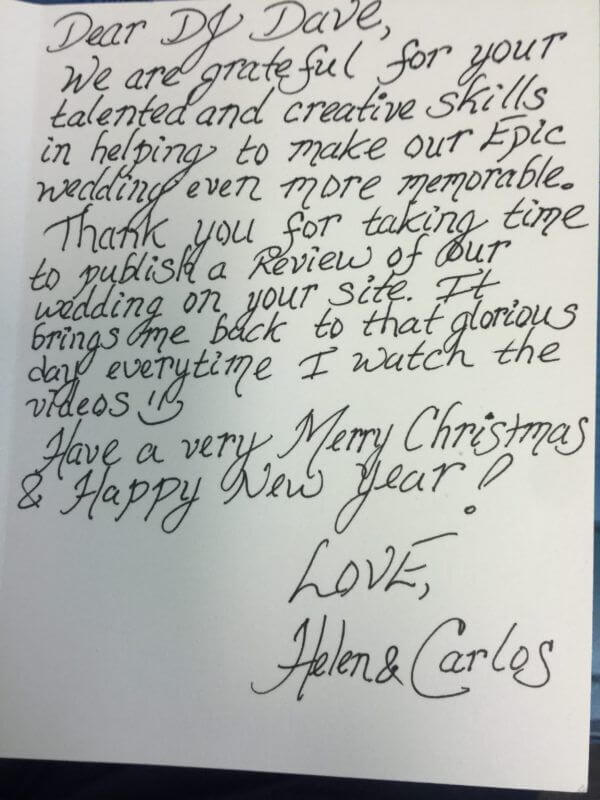 Dear DJ Dave,
We are grateful for your
talented and creative skills
in helping to make our Epic
wedding even more memorable.
Thank you for taking time
to publish a Review of our
wedding on your site. It
brings me back to that glorious
day everytime I watch the
videos :)
Have a very Merry Christmas
& Happy New Year!
LOVE,
Helen & Carlos